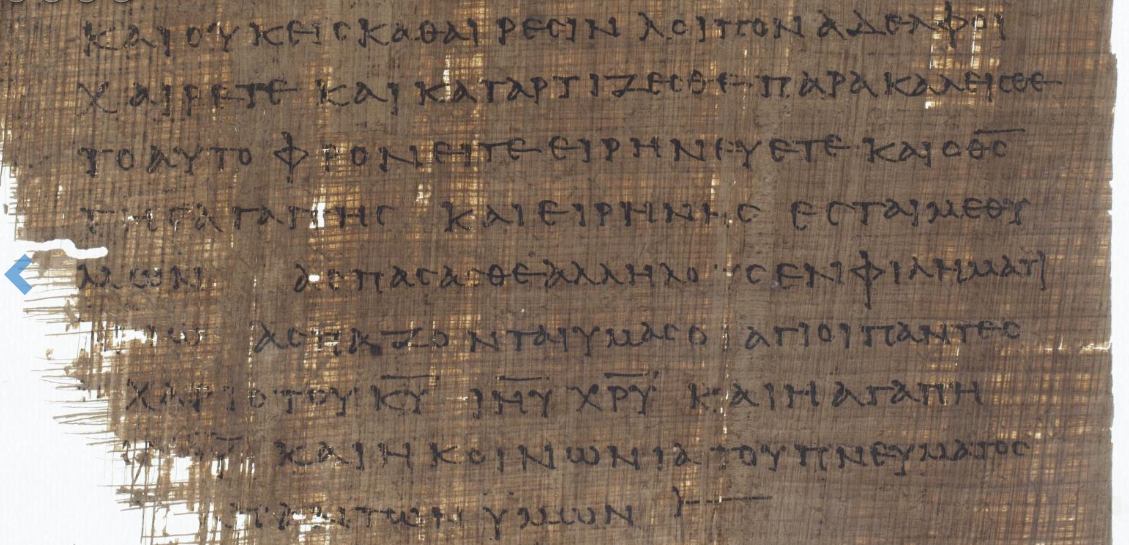 ΚΑΙ ΟΥΚ ΕΙϹ ΚΑΘΑΙΡΕϹΙΝ ΛΟΙΠΟΝ ΑΔΕΛΦΟΙ
ΧΑΙΡΕΤΕ ΚΑΙ ΚΑΤΑΡΤΙΖΕϹΘΕ ΠΑΡΑΚΑΛΕΙϹΘΕ
ΤΟ ΑΥΤΟ ΦΡΟΝΕΙΤΕ ΕΙΡΗΝΕΥΕΤΕ ΚΑΙ Ο Θ̅Ϲ̅
ΤΗϹ ΑΓΑΠΗϹ ΚΑΙ ΕΙΡΗΝΗϹ ΕϹΤΑΙ ΜΕΘ Υ
ΜΩΝ ΑϹΠΑϹΑϹΘΕ ΑΛΛΗΛΟΥϹ ΕΝ ΦΙΛΗΜΑΤΙ
ΑϹΠΑΖΟΝΤΑΙ ΥΜΑϹ ΟΙ ΑΓΙΟΙ ΠΑΝΤΕϹ
ΧΑΡΙϹ ΤΟΥ Κ̅Υ̅ Ι̅Η̅Υ̅ Χ̅Ρ̅Υ̅ ΚΑΙ Η ΑΓΑΠΗ
ΚΑΙ Η ΚΟΙΝΩΝΙΑ ΤΟΥ ΠΝΕΥΜΑΤΟϹ
ΠΑΝΤΩΝ ΥΜΩΝ